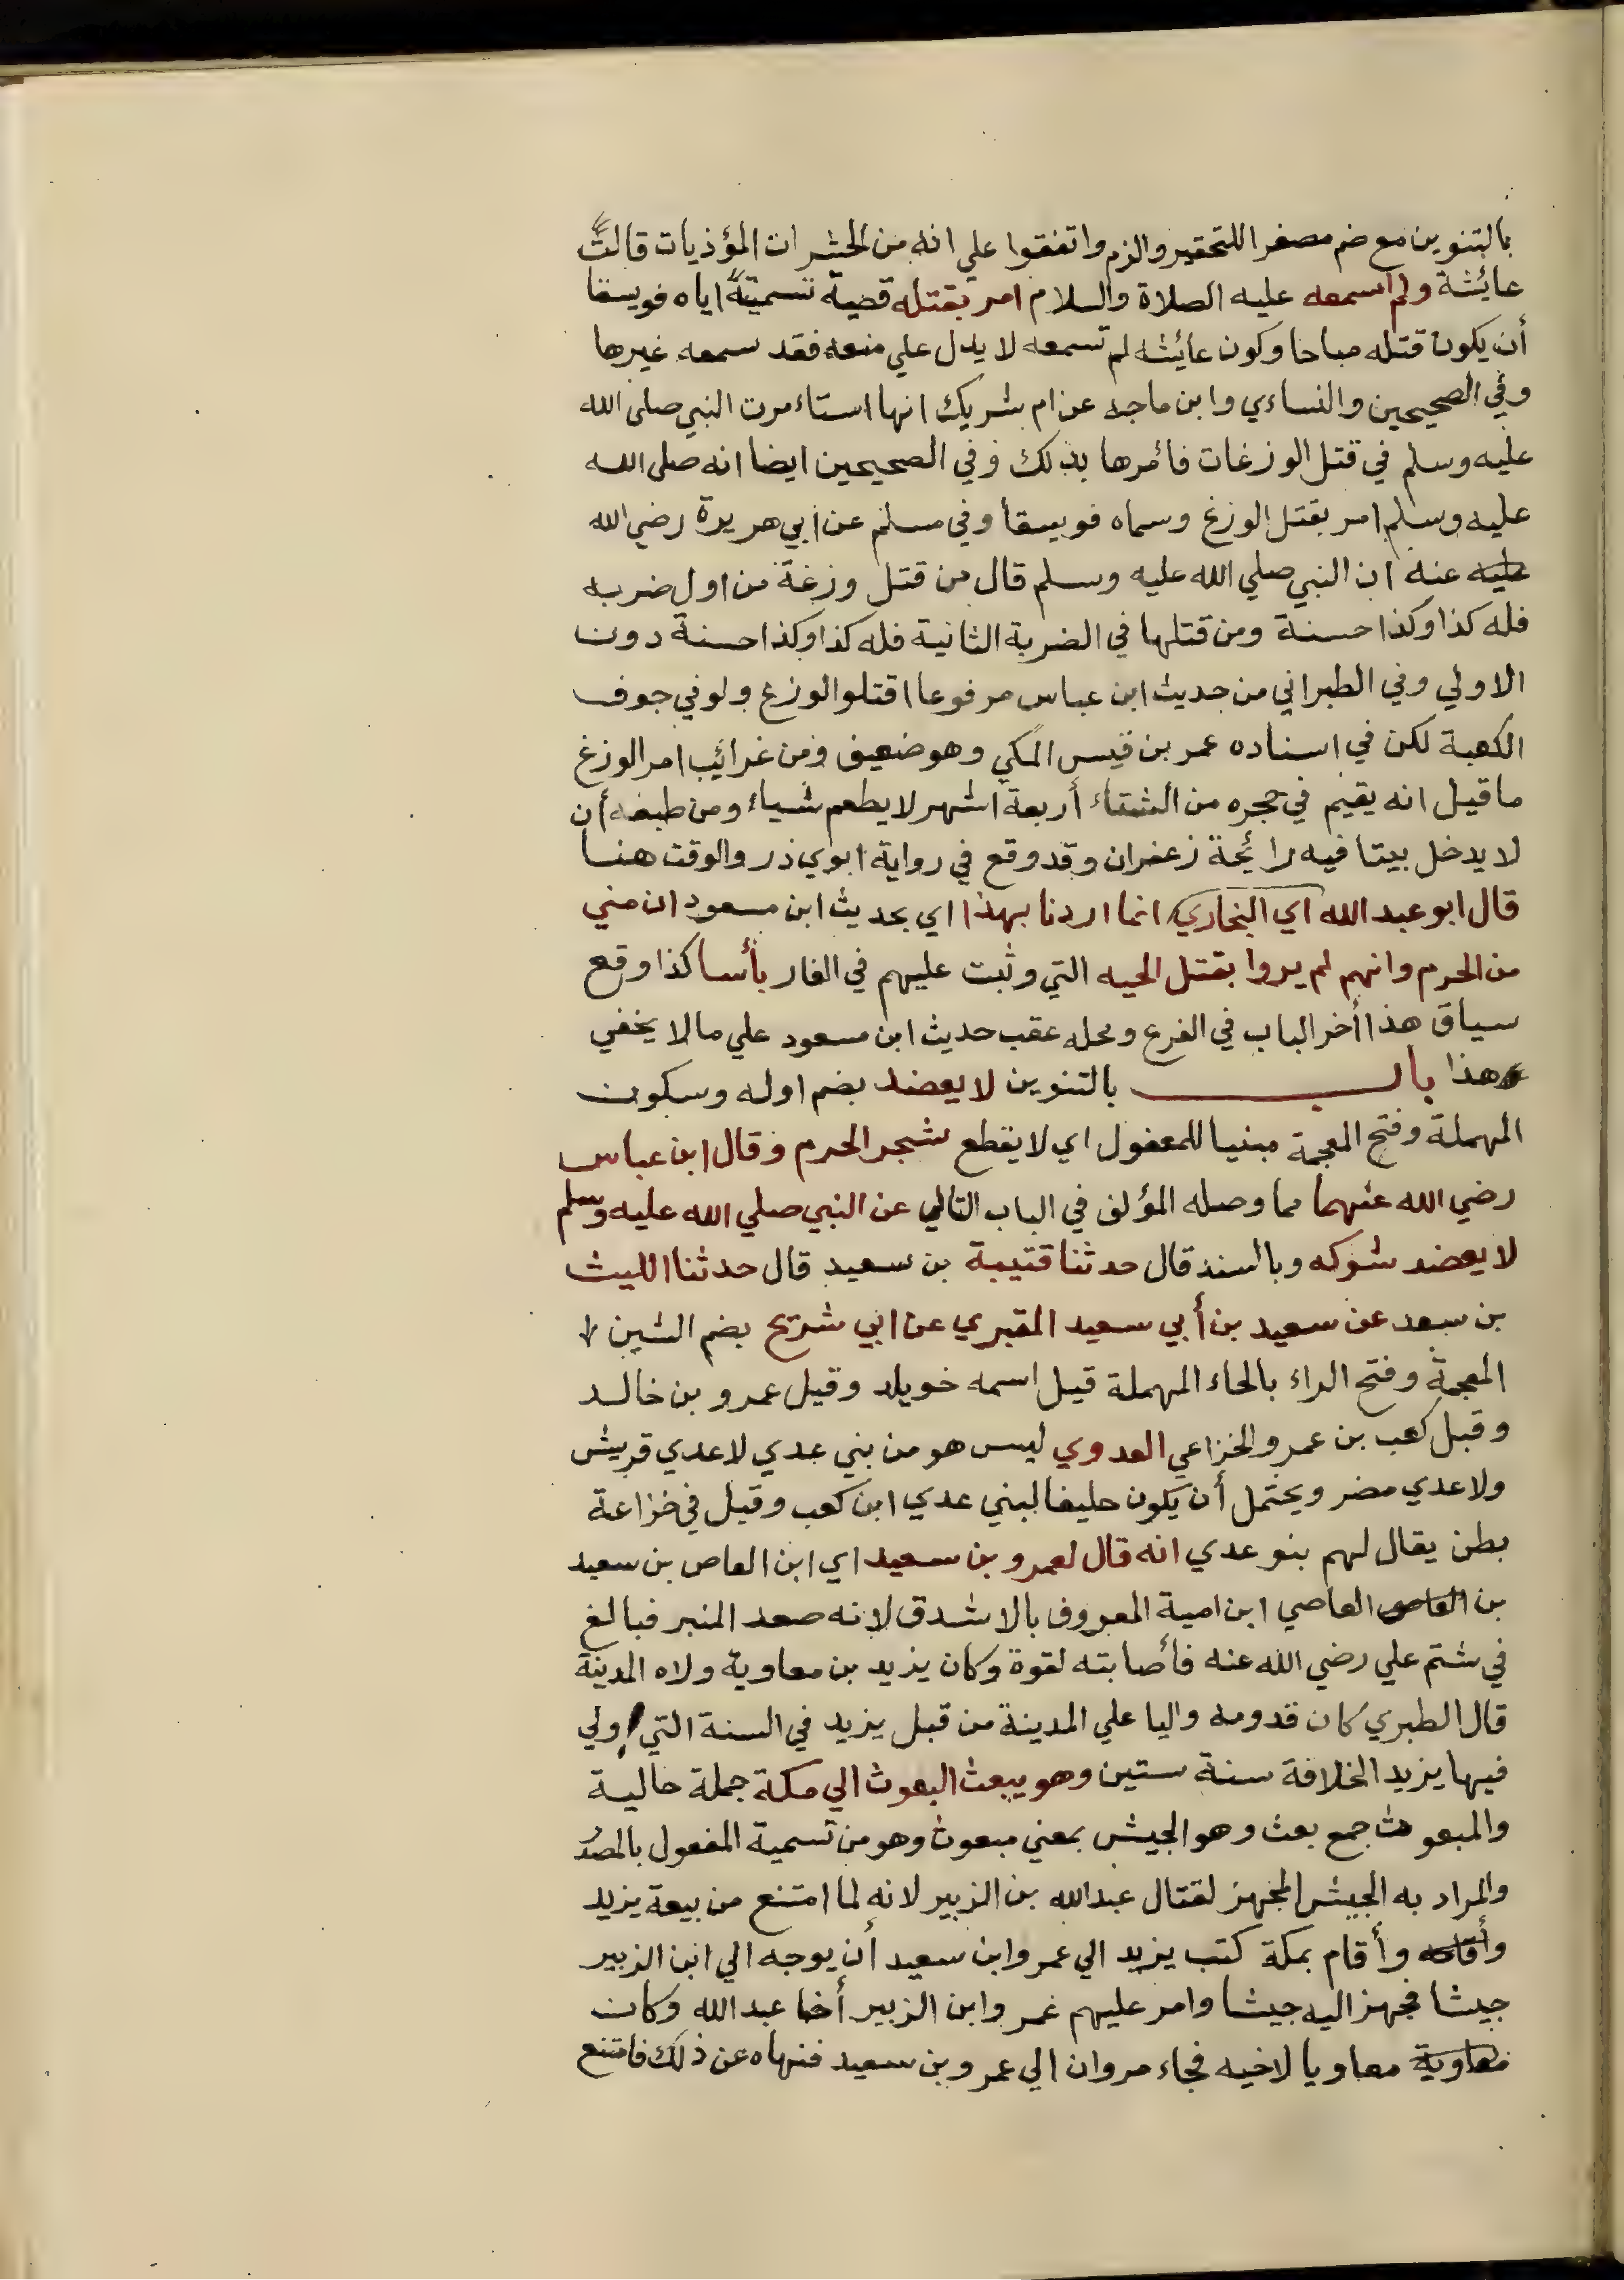 بالتنوين مع ضم مصغرا للتحقير والزم واتفقوا علي انه من الحشرات المؤذيات قالت
عائشة ولم اسمعه عليه الصلاة والسلام امر بقتله قضية تسميتة اياه فويسقا
أن يكون قتله مباحا وكون عائشه لم تسمعه لا يدل علي منعه فقد سمعه غيرها
وفي الصحيحين والنساءي وابن ماجه عن ام شريك انها استاءمرت النبي صلى الله
عليه وسلم في قتل الوزغات فأمرها بذلك وفي الصحيحين ايضا انه صلى الله
عليه وسلم امر بقتل الوزغ وسماه فويسقا وفي مسلم عن ابي هريرة رضي الله
عليه عنه ان النبي صلي الله عليه وسلم قال من قتل وزغة من اول ضربه
فله كذا وكذا حسنة ومن قتلها في الضربة الثانية فله كذا وكذا حسنة دون
الاولي وفي الطبراني من حديث ابن عباس مرفوعا اقتلوا لوزغ ولو في جوف
الكعبة لكن في اسناده عمر بن قيس المكي وهو ضعيف ومن غرائب امر الوزغ
ما قيل انه يقيم في حجره من الشتاء أربعة اشهر لا يطعم شياء ومن طبعه أن
لا يدخل بيتا فيه رائحة زعفران وقد وقع في رواية ابوي ذر والوقت هنا
قال ابو عبد الله اي البخاري انما اردنا بهذا اي بحديث ابن مسعود ان مني
من الحرم وانهم لم يروا بقتل الحيه التي وثبت عليهم في الغار بأسا كذا وقع
سياق هذا أخر الباب في الفرع ومحله عقب حديث ابن مسعود علي ما لا يخفي
هذا باب بالتنوين لا يعضد بضم اوله وسكون
المهملة وفتح المعجمة مبنيا للمعفول اي لا يقطع شجر الحرم وقال ابن عباس
رضي الله عنهما مما وصله المؤلف في الباب التالي عن النبي صلي الله عليه وسلم
لا يعضد شوكه وبالسند قال حدثنا قتيبة بن سعيد قال حدثنا الليث
بن سعد عن سعيد بن أبي سعيد المقبري عن ابي شريح بضم الشين
المعجمة وفتح الراء بالحاء المهملة قيل اسمه خويلد وقيل عمرو بن خالد
وقيل كعب بن عمرو الخزاعي العدوي ليس هو من بني عدي لا عدي قريش
ولا عدي مضر ويحتمل أن يكون حليفا لبني عدي ابن كعب وقيل في خزاعة
بطن يقال لهم بنو عدي انه قال لعمرو بن سعيد اي ابن العاص بن سعيد
بن العاص العاصي ابن امية المعروف بالاشدق لانه صعد المنبر فبالغ
في شتم علي رضي الله عنه فأصابته لقوة وكان يزيد بن معاوية ولاه المدينة
قال الطبري كان قدومه واليا علي المدينة من قبل يزيد في السنة التي ولي
فيها يزيد الخلافة سنة ستين وهو يبعث البعوث الي مكة جملة حالية
والمبعوث جمع بعث وهو الجيش بمعني مبعوث وهو من تسمية المفعول بالمصدر
والمراد به الجيش المجهز لقتال عبد الله بن الزبير لانه لما امتنع من بيعة يزيد
وأقامه وأقام بمكة كتب يزيد الي عمرو ابن سعيد أن يوجه الي ابن الزبير
جيشا فجهز اليه جيشا وامر عليهم عمرو ابن الزبير أخا عبد الله وكان
معاوية معاويا لاخيه فجاء مروان الي عمرو بن سعيد فنهاه عن ذلك فامتنع